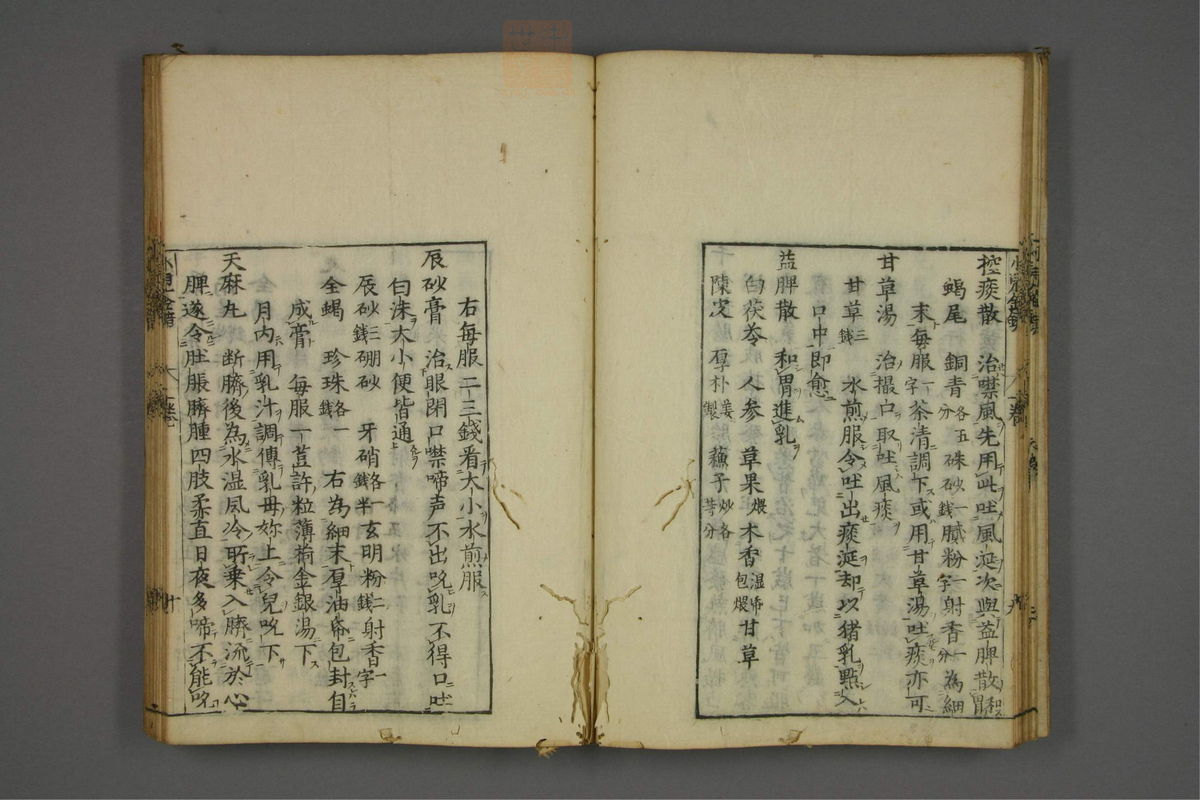 控痰散　治噤風先用此吐風涎次與益脾散和胃
蝎尾　銅青各五分　硃砂一錢　膩粉一字　射香一分　為細
末每服一字茶清調下或用甘草湯吐痰亦可
甘草湯　治撮口取吐風痰
甘草三錢　水煎服令吐出痰涎却以猪乳點入
口中即愈
益脾散　和胃進乳
白茯苓　人参　草果煨　木香湿帋包煨　甘草
陳皮　厚朴姜製　蘓子炒各等分
右每服二三錢看大小水煎服
辰砂膏　治眼閉口噤啼声不出吮乳不得口吐
白沫大小便皆通
辰砂三錢　硼砂　牙硝各一錢半　玄明粉二錢　射香一字
全蝎　珍珠各一錢　右為細末厚油帋包封自
成膏　每服一荳許粒薄荷金銀湯下
月内用乳汁調傅乳母妳上令兒吮下
天麻丸　断臍後為水温風冷所乗入臍流於心
脾遂令肚脹臍腫四肢柔直日夜多啼不能吮